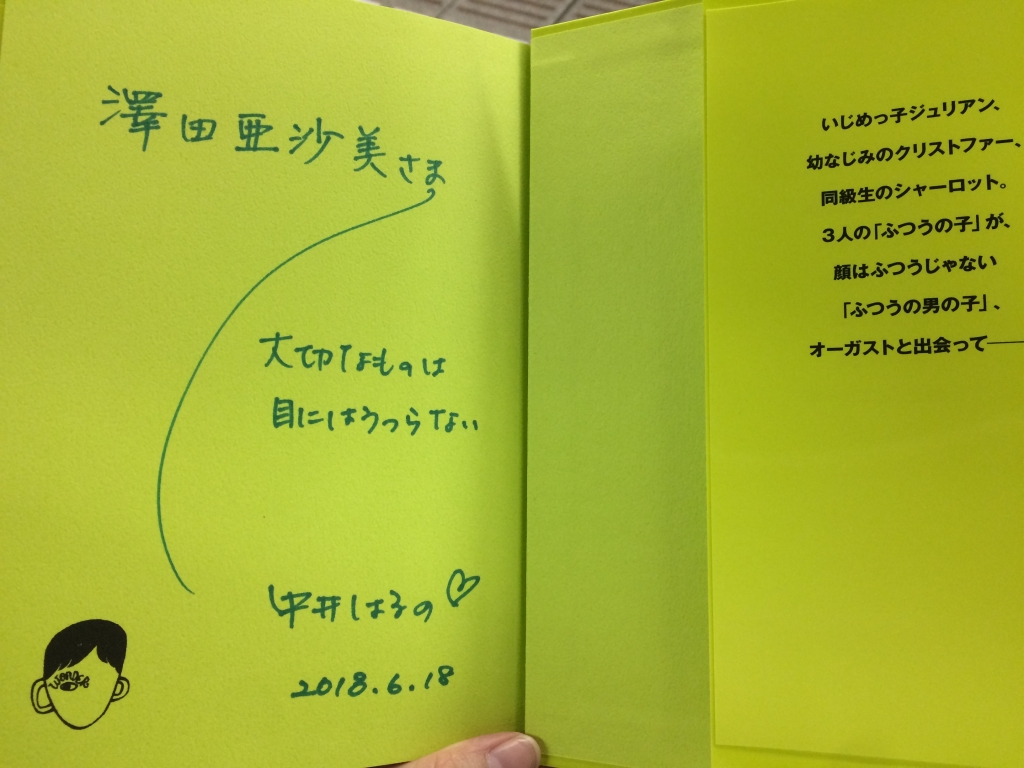 澤田亜沙美さま
大切なものは
目にはうつらない
中井はるの♡
2018.6.18
WONDER
いじめっ子ジュリアン、
幼なじみのクリストファー、
同級生のシャーロット。
3人の「ふつうの子」が、
顔はふつうじゃない
「ふつうの男の子」、
オーガストと出会って──